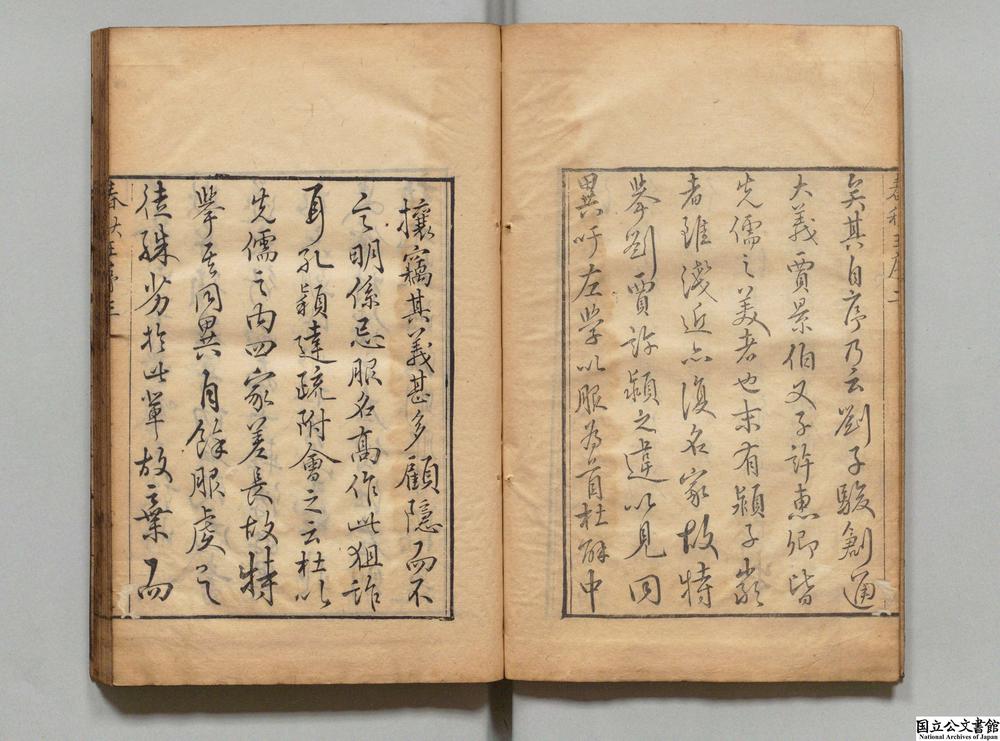 矣其自序乃云劉子駿創通
大義賈景伯父子許惠卿皆
先儒之美者也末有潁子嚴
者雖淺近亦復名家故特
舉劉賈許潁之違以見同
異吁左学以服為首杜解中
攘竊其義甚多顧隱而不
言明係忌服名高作此狙詐
耳孔穎達疏附會之云杜以
先儒之内四家差長故特
擧其同異自餘服虔之
徒殊劣於此輩故棄而
国立公文書館
National Archives of Japan